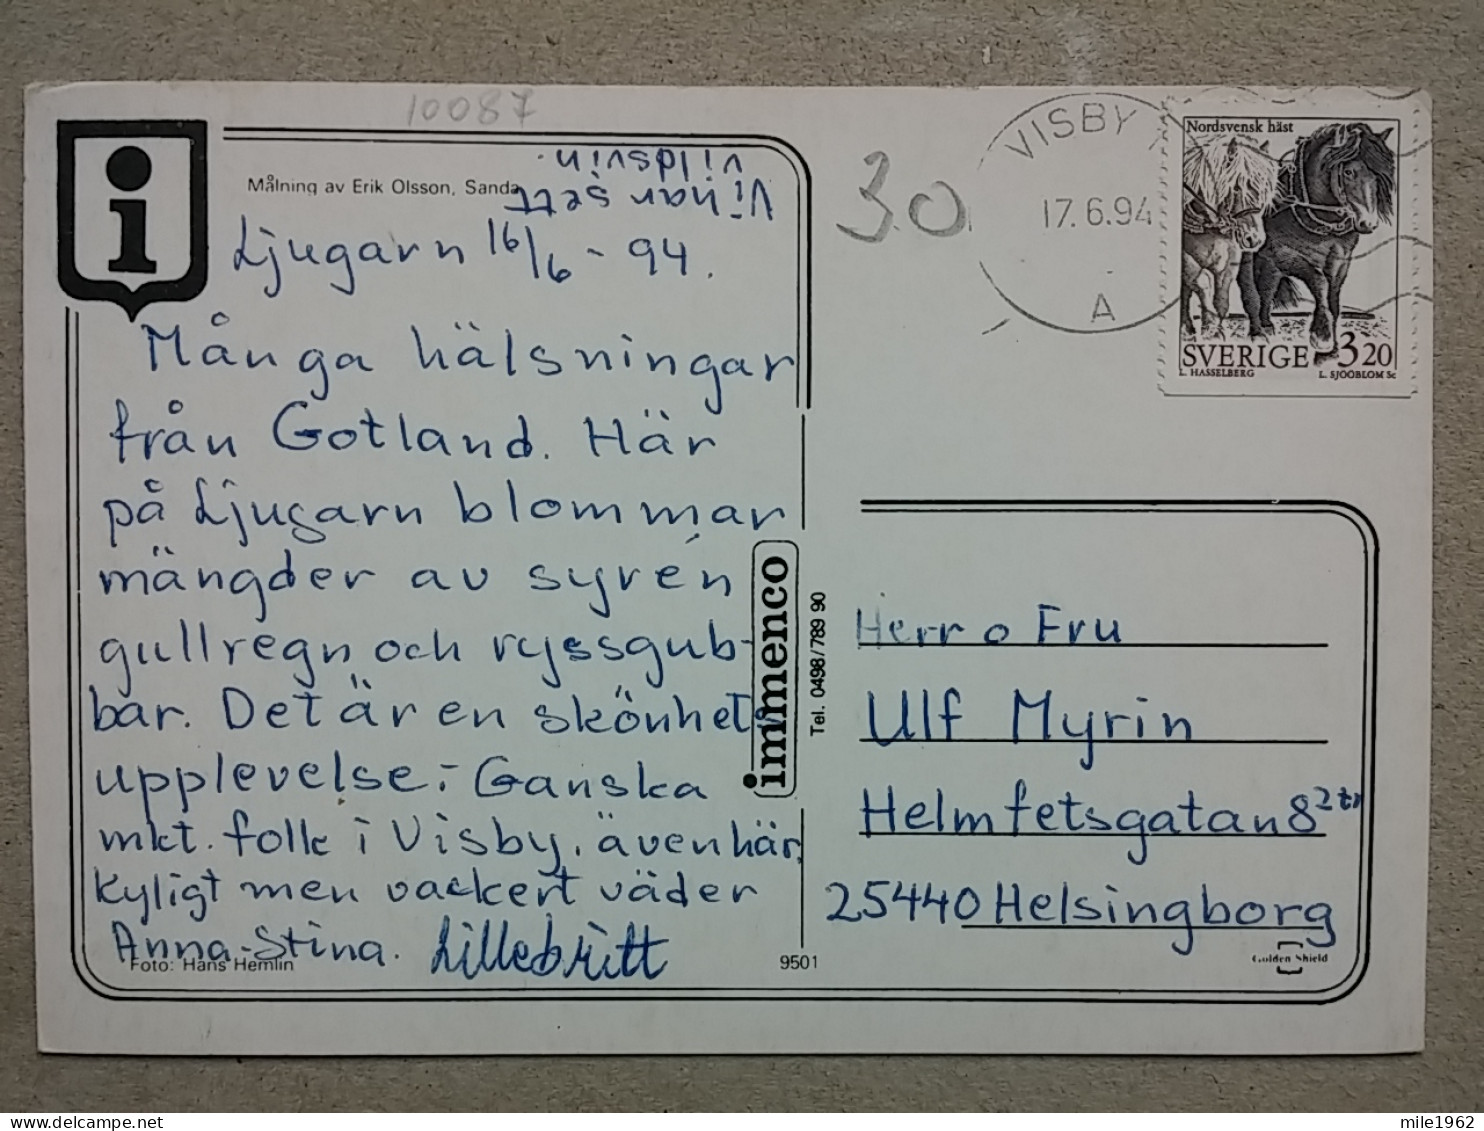 10087
Målning av Erik Olsson, Sanda
Vi har sett
vildsvin.
Ljugarn 16/6 - 94.
Många hälsningar
från Gotland. Här
på Ljugarn blommar
mängder av syrén
gullregn och ryssgub-
bar. Det är en skönhets
upplevelse.- Ganska
mkt. folk i Visby, även här.
Kyligt men vackert väder
Anna-Stina. Lillebritt
Foto: Hans Hemlin
9501
immenco
Tel. 0498/789 90
30
VISBY
17.6.94
A
Nordsvensk häst
SVERIGE 320
L. HASSELBERG L. SJÖÖBLOM Sc
Herr o Fru
Ulf Myrin
Helmfetsgatan 8 2tr
25440 Helsingborg
Golden Shield
mile1962